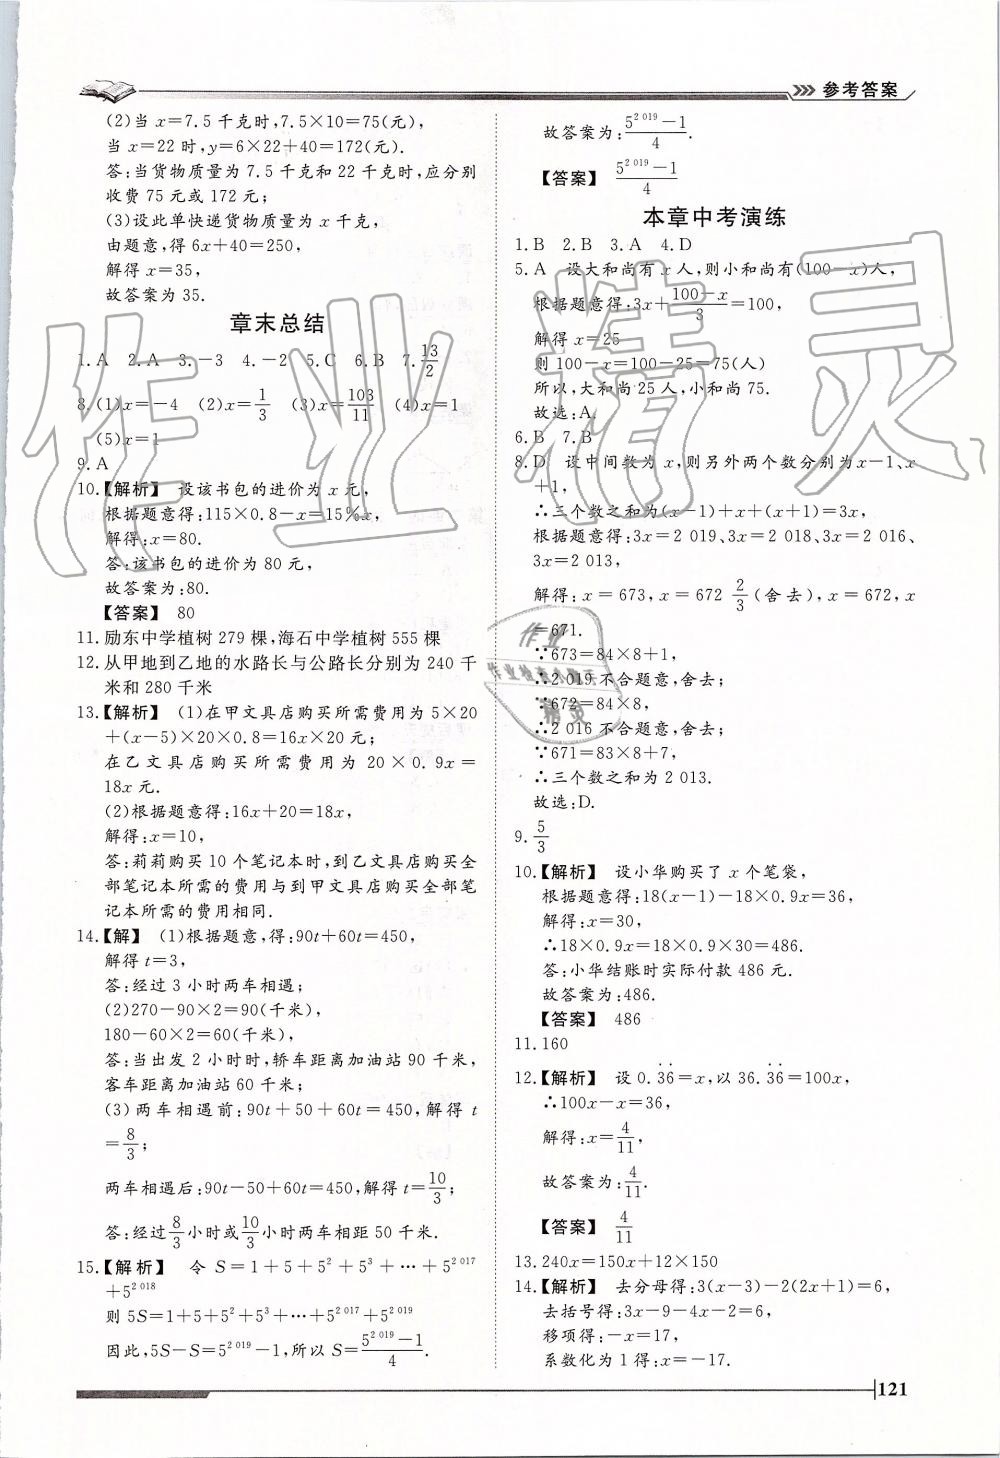 参考答案
(2)当 x=7.5 千克时,7.5×10=75(元),
当 x=22 时,y=6×22+40=172(元).
答:当货物质量为 7.5 千克和 22 千克时,应分别
收费 75 元或 172 元;
(3)设此单快递货物质量为 x 千克,
由题意,得 6x+40=250,
解得 x=35,
故答案为 35.
章末总结
1. A 2. A 3. -3 4. -2 5. C 6. B 7. 13/2
8. (1)x=-4 (2)x=1/3 (3)x=103/11 (4)x=1
(5)x=1
9. A
10.【解析】 设该书包的进价为 x 元,
根据题意得:115×0.8-x=15%x,
解得:x=80.
答:该书包的进价为 80 元,
故答案为:80.
【答案】 80
11. 励东中学植树 279 棵,海石中学植树 555 棵
12. 从甲地到乙地的水路长与公路长分别为 240 千
米和 280 千米
13.【解析】 (1)在甲文具店购买所需费用为 5×20
+(x-5)×20×0.8=16x+20元;
在乙文具店购买所需费用为 20×0.9x=
18x 元.
(2)根据题意得:16x+20=18x,
解得:x=10,
答:莉莉购买 10 个笔记本时,到乙文具店购买全
部笔记本所需的费用与到甲文具店购买全部笔
记本所需的费用相同.
14.【解】 (1)根据题意,得:90t+60t=450,
解得 t=3,
答:经过 3 小时两车相遇;
(2)270-90×2=90(千米),
180-60×2=60(千米),
答:当出发 2 小时时,轿车距离加油站 90 千米,
客车距离加油站 60 千米;
(3)两车相遇前:90t+50+60t=450,解得 t
=8/3;
两车相遇后:90t-50+60t=450,解得 t=10/3;
答:经过8/3小时或10/3小时两车相距 50 千米.
15.【解析】 令 S=1+5+5²+5³+…+5^2 017
+5^2 018
则 5S=1+5+5²+5³+…+5^2 017+5^2 019
因此,5S-S=5^2 019-1,所以 S=(5^2 019-1)/4.
故答案为:(5^2 019-1)/4.
【答案】 (5^2 019-1)/4
本章中考演练
1. B 2. B 3. A 4. D
5. A 设大和尚有 x 人,则小和尚有(100-x)人,
根据题意得:3x+(100-x)/3=100,
解得 x=25
则 100-x=100-25=75(人)
所以,大和尚 25 人,小和尚 75.
故选:A.
6. B 7. B
8. D 设中间数为 x,则另外两个数分别为x-1、x
+1,
∴三个数之和为(x-1)+x+(x+1)=3x,
根据题意得:3x=2 019、3x=2 018、3x=2 016、
3x=2 013,
解得:x=673,x=672 2/3(舍去),x=672,x
=671.
∵673=84×8+1,
∴2 019 不合题意,舍去;
∵672=84×8,
∴2 016 不合题意,舍去;
∵671=83×8+7,
∴三个数之和为 2 013.
故选:D.
9. 5/3
10.【解析】 设小华购买了 x 个笔袋,
根据题意得:18(x-1)-18×0.9x=36,
解得:x=30,
∴18×0.9x=18×0.9×30=486.
答:小华结账时实际付款 486 元.
故答案为:486.
【答案】 486
11. 160
12.【解析】 设 0.3̇6̇=x,以 36.3̇6̇=100x,
∴100x-x=36,
解得:x=4/11,
故答案为:4/11.
【答案】 4/11
13. 240x=150x+12×150
14.【解析】 去分母得:3(x-3)-2(2x+1)=6,
去括号得:3x-9-4x-2=6,
移项得:-x=17,
系数化为 1 得:x=-17.
121
作业精灵